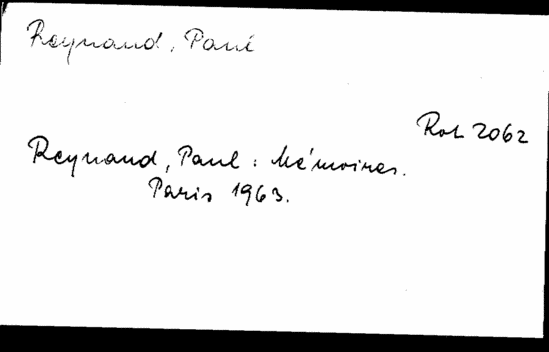 Reynaud, Paul
Rol 2062
Reynaud, Paul : Mémoires.
Paris 1963.